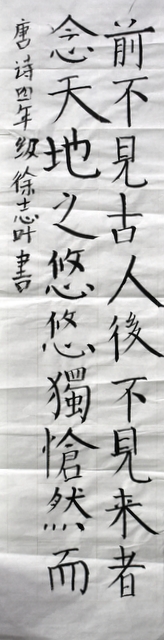 前不見古人後不見来者
念天地之悠悠獨愴然而
唐诗四年级徐志叶書